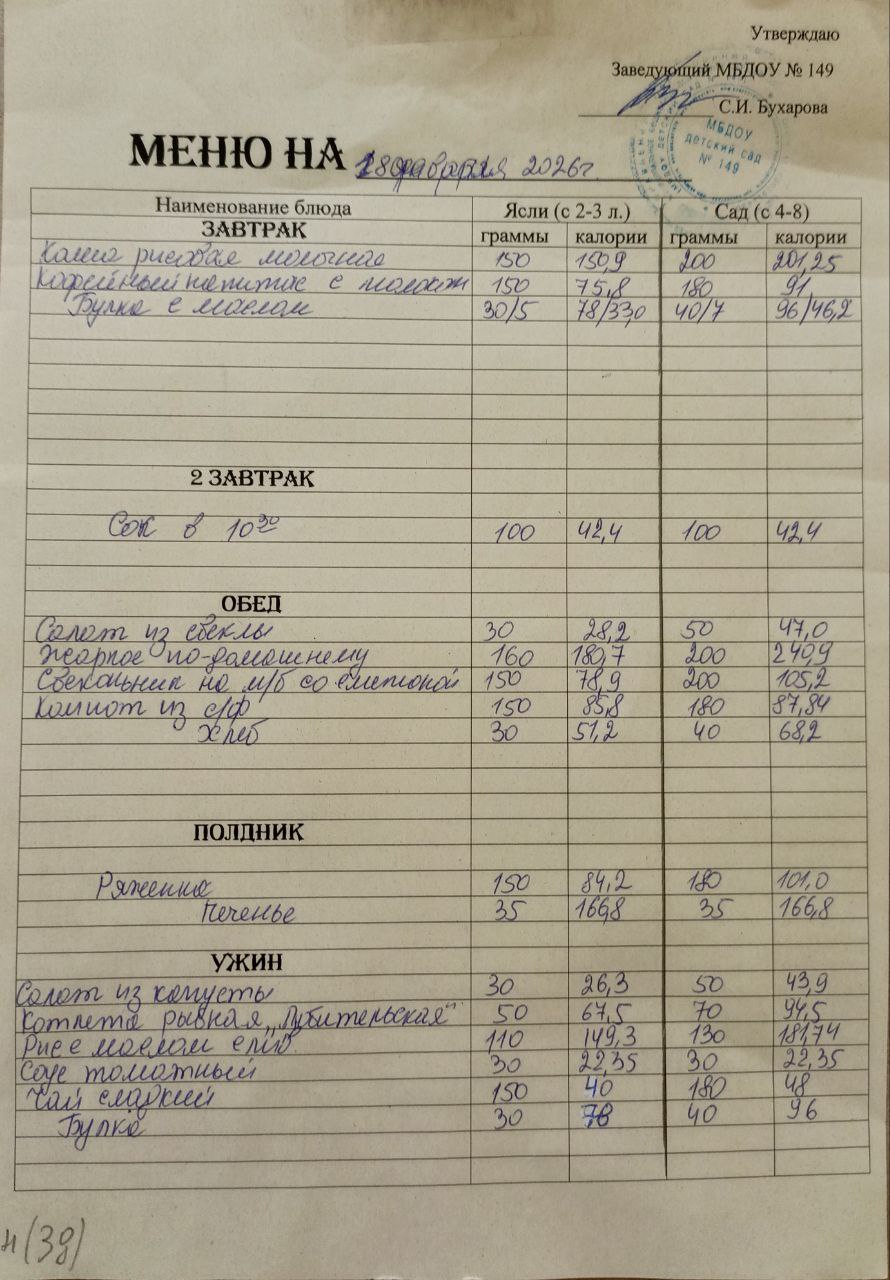 Утверждаю
Заведующий МБДОУ № 149
С.И. Бухарова
МБДОУ
детский сад
№ 149
МЕНЮ НА 18 февраля 2026г.
Наименование блюда Ясли (с 2-3 л.) Сад (с 4-8)
ЗАВТРАК граммы калории граммы калории
Каша рисовая молочная 150 150,9 200 201,25
Кофейный напиток с молоком 150 75,8 180 91
Булка с маслом 30/5 78/33,0 40/7 96/46,2
2 ЗАВТРАК
Сок в 10 30 100 42,4 100 42,4
ОБЕД
Салат из свеклы 30 28,2 50 47,0
Жаркое по-домашнему 160 180,7 200 240,9
Свекольник на м/б со сметаной 150 78,9 200 105,2
Компот из с/ф 150 85,8 180 87,84
Хлеб 30 51,2 40 68,2
ПОЛДНИК
Ряженка 150 84,2 180 101,0
Печенье 35 166,8 35 166,8
УЖИН
Салат из капусты 30 26,3 50 43,9
Котлета рыбная „Любительская" 50 67,5 70 94,5
Рис с маслом 110 149,3 130 181,74
Соус томатный 30 22,35 30 22,35
Чай сладкий 150 40 180 48
Булка 30 78 40 96
(39)